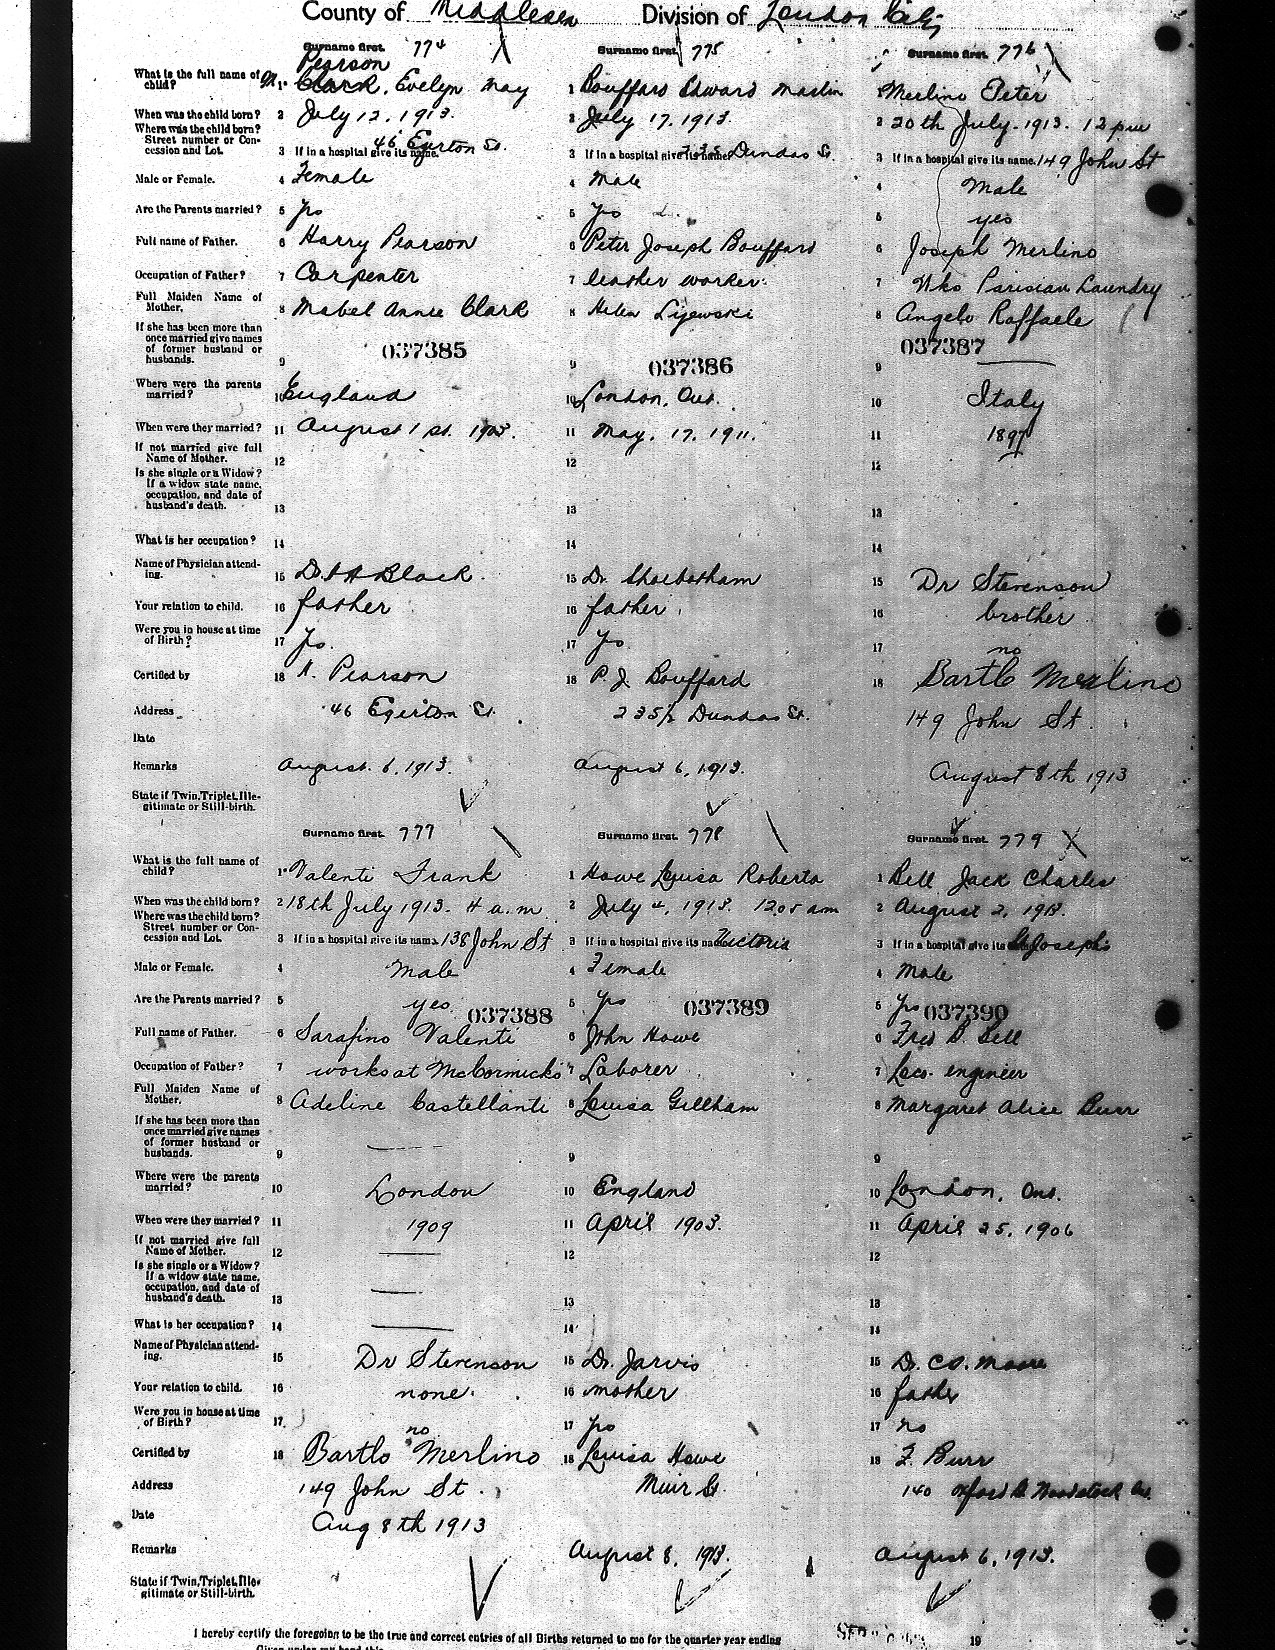 County of Middlesex Division of London City
Surname first. 774 Surname first. 775 Surname first. 776
Pearson
What is the full name of child? 1 Clark, Evelyn May 1 Bouffard Edward Martin 1 Merlino Peter
When was the child born? 2 July 12. 1913. 2 July 17. 1913. 2 20th July. 1913. 12 pm
Where was the child born? Street number or Concession and Lot. 3 If in a hospital give its name. 46 Egerton St. 3 If in a hospital give its name. Dundas St. 3 If in a hospital give its name. 149 John St
Male or Female. 4 Female 4 Male 4 Male
Are the Parents married? 5 Yes 5 Yes 5 yes
Full name of Father. 6 Harry Pearson 6 Peter Joseph Bouffard 6 Joseph Merlino
Occupation of Father? 7 Carpenter 7 leather worker. 7 Wks Parisian Laundry
Full Maiden Name of Mother. 8 Mabel Annie Clark 8 Helen Lijewski 8 Angelo Raffaele
If she has been more than once married give names of former husband or husbands. 9 037385 9 037386 9 037387
Where were the parents married? 10 England 10 London, Ont. 10 Italy
When were they married? 11 August 1st. 11 May. 17. 1911. 11 1897
If not married give full Name of Mother. 12 12 12
Is she single or a Widow? If a widow state name, occupation, and date of husband's death. 13 13 13
What is her occupation? 14 14 14
Name of Physician attending. 15 Dr. Black. 15 Dr. Shoebotham 15 Dr Stevenson
Your relation to child. 16 father 16 father. 16 brother
Were you in house at time of Birth? 17 Yes. 17 Yes. 17 no
Certified by 18 H. Pearson 18 P. J. Bouffard 18 Bartlo Merlino
Address 46 Egerton St. 235½ Dundas St. 149 John St.
Date
Remarks August. 6, 1913. August 6, 1913. August 8th 1913
State if Twin, Triplet, Illegitimate or Still-birth.
Surname first. 777 Surname first. 778 Surname first. 779
What is the full name of child? 1 Valenti Frank 1 Howe Louisa Roberta 1 Bell Jack Charles
When was the child born? 2 18th July 1913. 4 a.m. 2 July 4, 1913. 12.05 am 2 August 2, 1913.
Where was the child born? Street number or Concession and Lot. 3 If in a hospital give its name. 138 John St 3 If in a hospital give its name Victoria 3 If in a hospital give its St Joseph's
Male or Female. 4 Male 4 Female 4 Male
Are the Parents married? 5 yes. 037388 5 Yes 037389 5 Yes 037390
Full name of Father. 6 Sarafino Valenti 6 John Howe 6 Fred Bell
Occupation of Father? 7 works at McCormicks 7 Laborer 7 Loco. engineer
Full Maiden Name of Mother. 8 Adeline Castellanti 8 Louisa Gillham 8 Margaret Alice Burr
If she has been more than once married give names of former husband or husbands. 9 9 9
Where were the parents married? 10 London 10 England 10 London, Ont.
When were they married? 11 1909 11 April 1903. 11 April 25, 1906
If not married give full Name of Mother. 12 12 12
Is she single or a Widow? If a widow state name, occupation, and date of husband's death. 13 13 13
What is her occupation? 14 14 14
Name of Physician attending. 15 Dr Stevenson 15 Dr. Jarvis 15 Dr. Moore
Your relation to child. 16 none. 16 mother 16 father
Were you in house at time of Birth? 17 no 17 Yes 17 no
Certified by 18 Bartlo Merlino 18 Louisa Howe 18 F. Burr
Address 149 John St. Muir St. 140 Oxford St Woodstock Ont.
Date Aug 8th 1913
Remarks August 8, 1913. August 6, 1913.
State if Twin, Triplet, Illegitimate or Still-birth.
I hereby certify the foregoing to be the true and correct entries of all Births returned to me for the quarter year ending 19
Given under my hand this